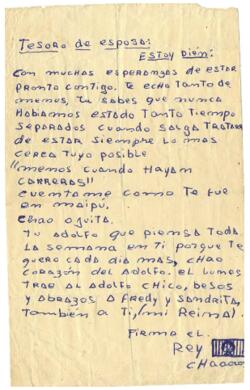 Tesoro de esposa:
Estoy bien:
Con muchas esperanzas de estar
pronto contigo. Te echo tanto de
menos, tu sabes que nunca
habiamos estado tanto tiempo
separados cuando salga tratare
de estar siempre lo mas
cerca tuyo posible
"menos cuando hayam
carreras"
Cuentame como te fue
en maipu.
Chao
Tu Adolfo que piensa toda
la semana en ti porque te
quero cada dia mas, chao
corazon del Adolfo. el lunes
trae al Adolfo chico, besos
y abrazos a Fredy y Sandrita,
tambien a ti, (mi Reina)
Firma el
Rey
chaooo